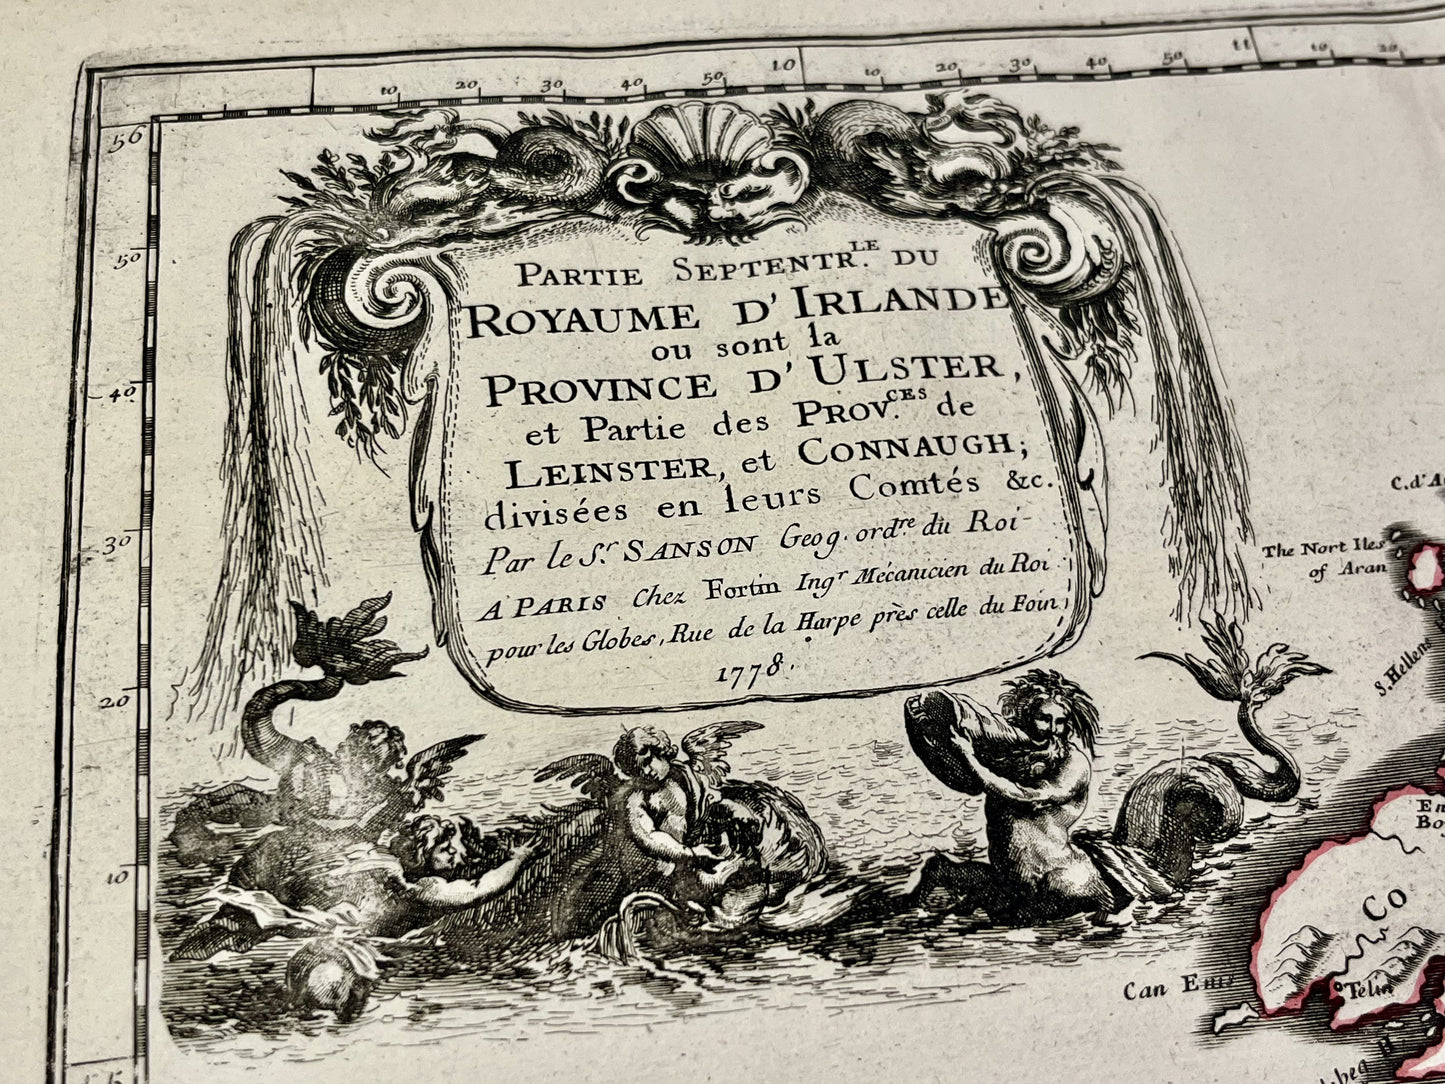 10 20 30 40 50 10 10 20 30 40 50 11 10 20
56
50
40
30
20
10
55
PARTIE SEPTENTR.LE DU
ROYAUME D'IRLANDE
ou sont la
PROVINCE D'ULSTER,
et Partie des PROV.CES de
LEINSTER, et CONNAUGH;
divisées en leurs Comtés &c.
Par le Sr. SANSON Geog. ordre. du Roi
A PARIS Chez Fortin Ingr Mécanicien du Roi
pour les Globes, Rue de la Harpe près celle du Foin,
1778.
The Nort Iles
of Aran
S. Hellens
Co
Can Enis
Telin